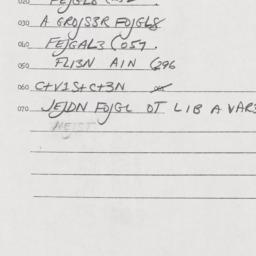 020
030 A GROJSSR FOJGL8
040 FEJGAL3 (057.
050 FLI3N AIN (296
060 C+V1S+C+3N
070 JEJDN FOJGL OT LIB A VAR3
MEJST